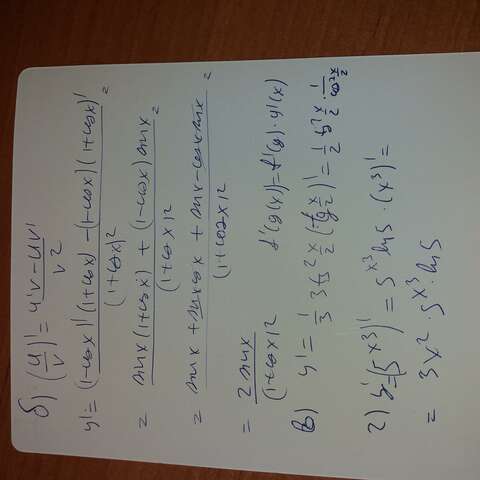 б) (u/v)' = u'v - uv' / v²
y' = (1-cosx)'(1+cosx) - (1-cosx)(1+cosx)' / (1+cosx)² =
= sinx(1+cosx) + (1-cosx)sinx / (1+cosx)² =
= sinx + sinxcosx + sinx - cosxsinx / (1+cosx)² =
= 2sinx / (1+cosx)² f'(g(x)) = f'(g) · g'(x)
в) y' = 1/3 · 3 tg² x/2 (tg x/2)' = 1/2 tg² x/2 · 1/cos² x/2
г) y' = (5^x³)' = 5^x³ ln5 · (x³)' =
= 3x² · 5^x³ · ln5